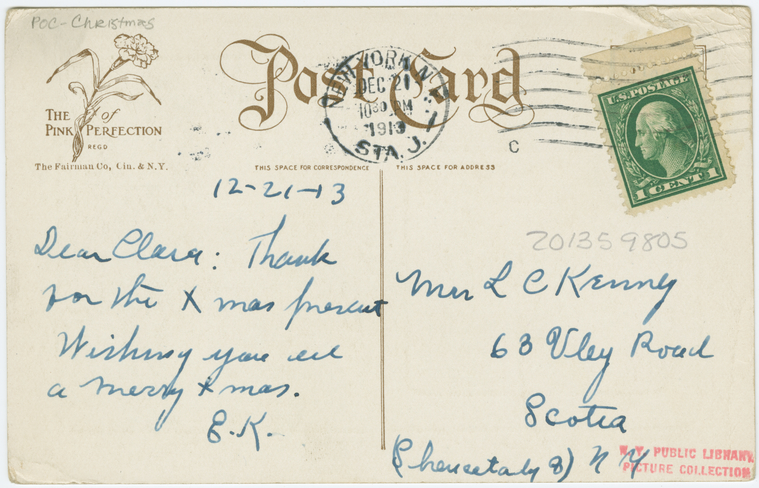 POC-Christmas
Post Card
THE of
PINK PERFECTION
REGD
The Fairman Co, Cin. & N.Y.
NEW YORK, N.Y.
DEC 21
10 30 PM
1913
STA. J.
C
U.S. POSTAGE
1 CENT 1
THIS SPACE FOR CORRESPONDENCE
THIS SPACE FOR ADDRESS
12-21-13
Dear Clara: Thank
for the X mas present
Wishing you all
a merry X mas.
E.K.
201359805
Mrs L C Kenney
63 Vley Road
Scotia
(Schenectady 8) N Y
N.Y. PUBLIC LIBRARY
PICTURE COLLECTION